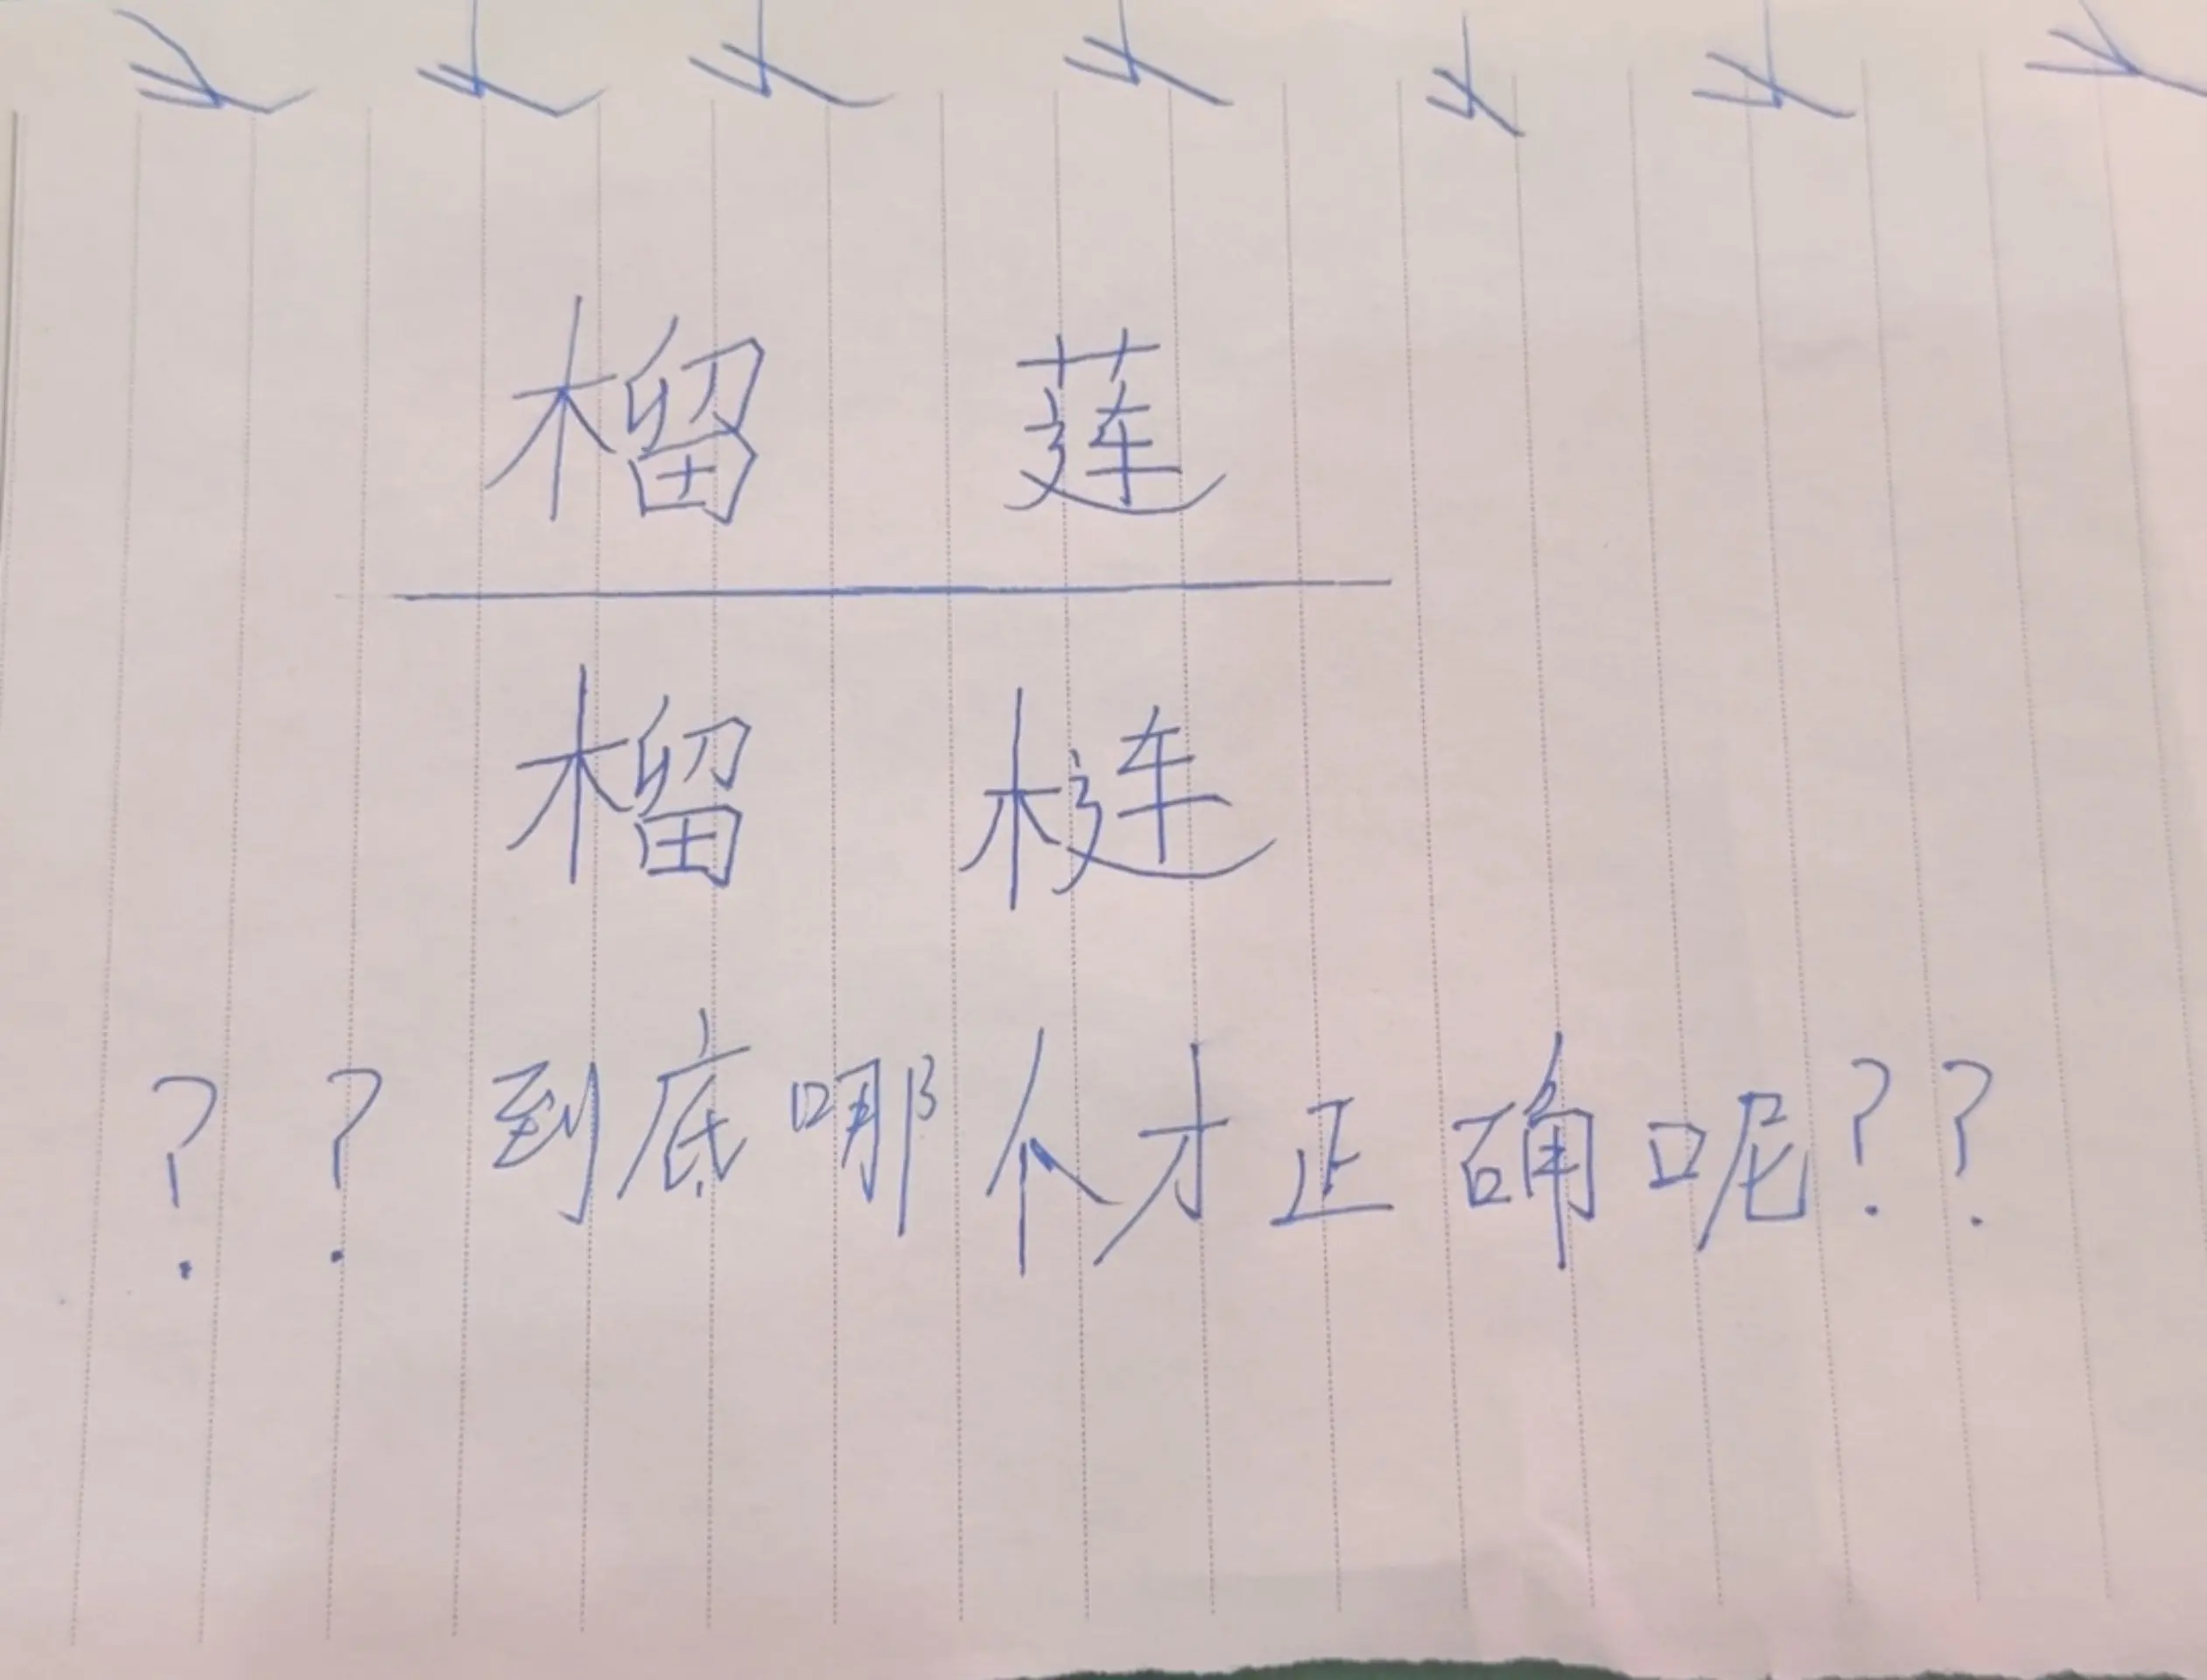 榴莲
榴梿
??到底哪个才正确呢??